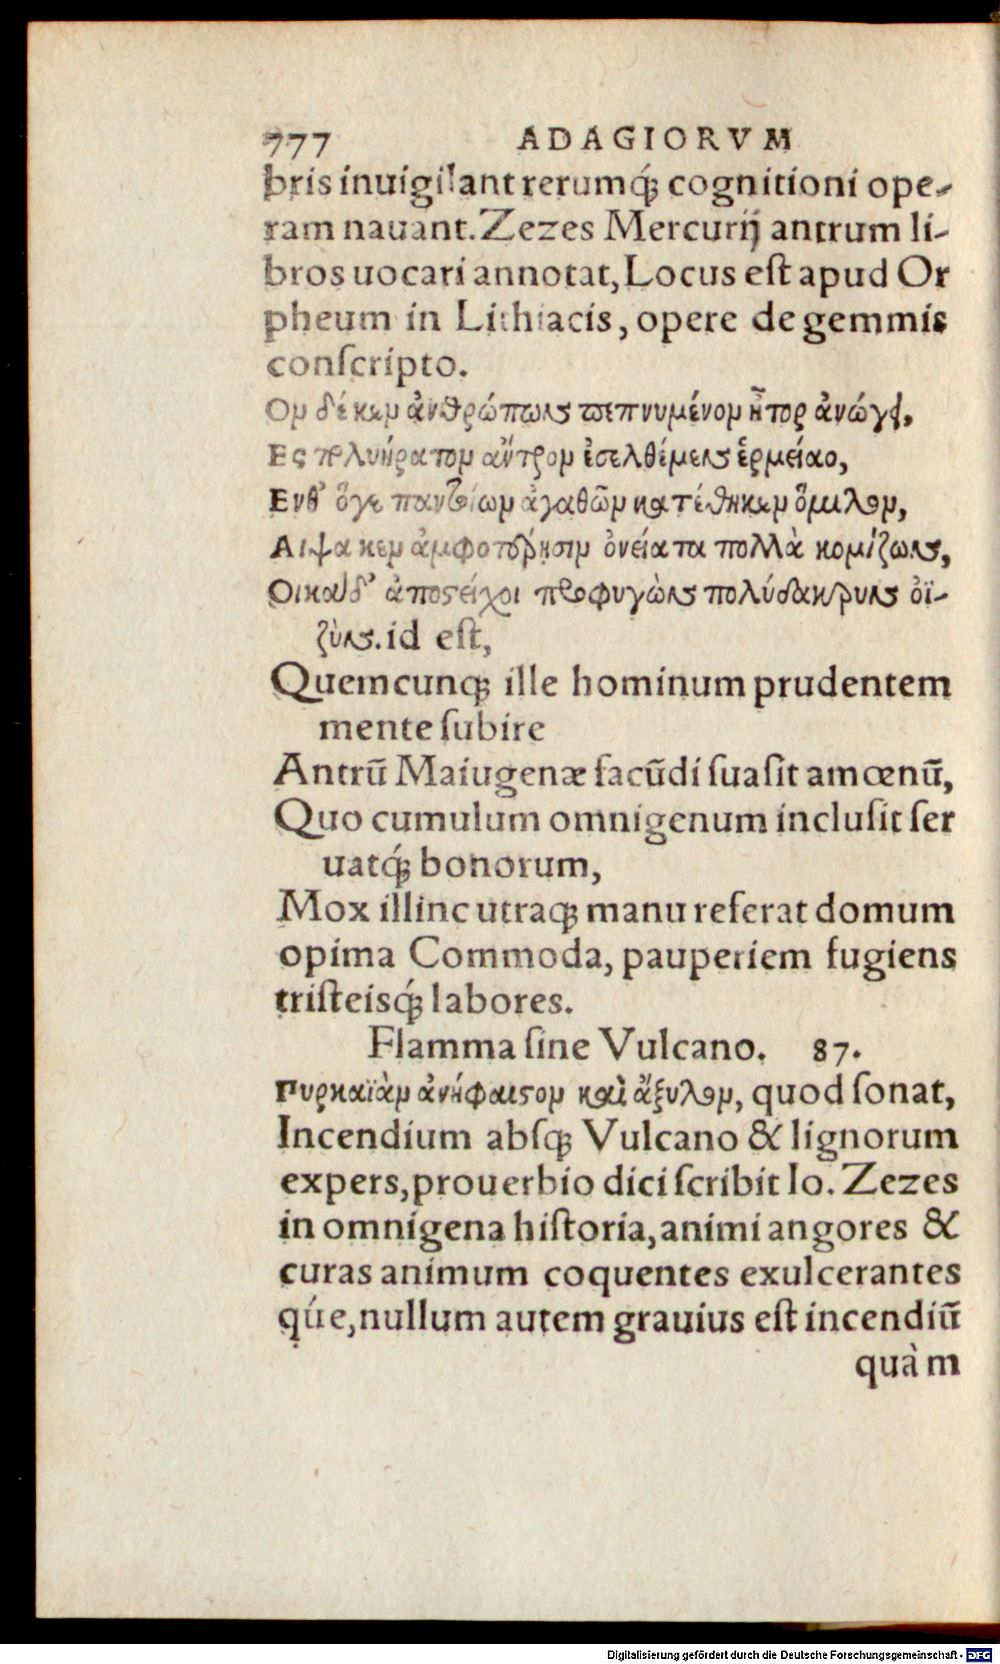 777 ADAGIORVM
bris inuigilant rerumq́; cognitioni ope-
ram nauant. Zezes Mercurij antrum li-
bros uocari annotat, Locus eſt apud Or
pheum in Lithiacis, opere de gemmis
conſcripto.
Ον δέ κεν ἀνθρώπων πεπνυμένον ἦτορ ἀνώγει,
Ες πολυήρατον ἄντρον ἐσελθέμεν ἑρμείαο,
Ενθ' ὅγε παντοίων ἀγαθῶν κατέθηκεν ὅμιλον,
Αιψα κεν ἀμφοτέρῃσιν ὀνείατα πολλὰ κομίζων,
Οικαδ' ἀποστείχοι προφυγὼν πολύδακρυν ὀϊ-
ζὺν. id eſt,
Quemcunq; ille hominum prudentem
mente ſubire
Antrū Maiugenæ facūdi ſuaſit amœnū,
Quo cumulum omnigenum incluſit ſer
uatq́; bonorum,
Mox illinc utraq; manu referat domum
opima Commoda, pauperiem fugiens
triſteisq́; labores.
Flamma ſine Vulcano. 87.
Πυρκαϊὰν ἀνήφαιστον καὶ ἄξυλον, quod ſonat,
Incendium abſq; Vulcano & lignorum
expers, prouerbio dici ſcribit Io. Zezes
in omnigena hiſtoria, animi angores &
curas animum coquentes exulcerantes
q́ue, nullum autem grauius eſt incendiū
quàm
Digitalisierung gefördert durch die Deutsche Forschungsgemeinschaft - DFG